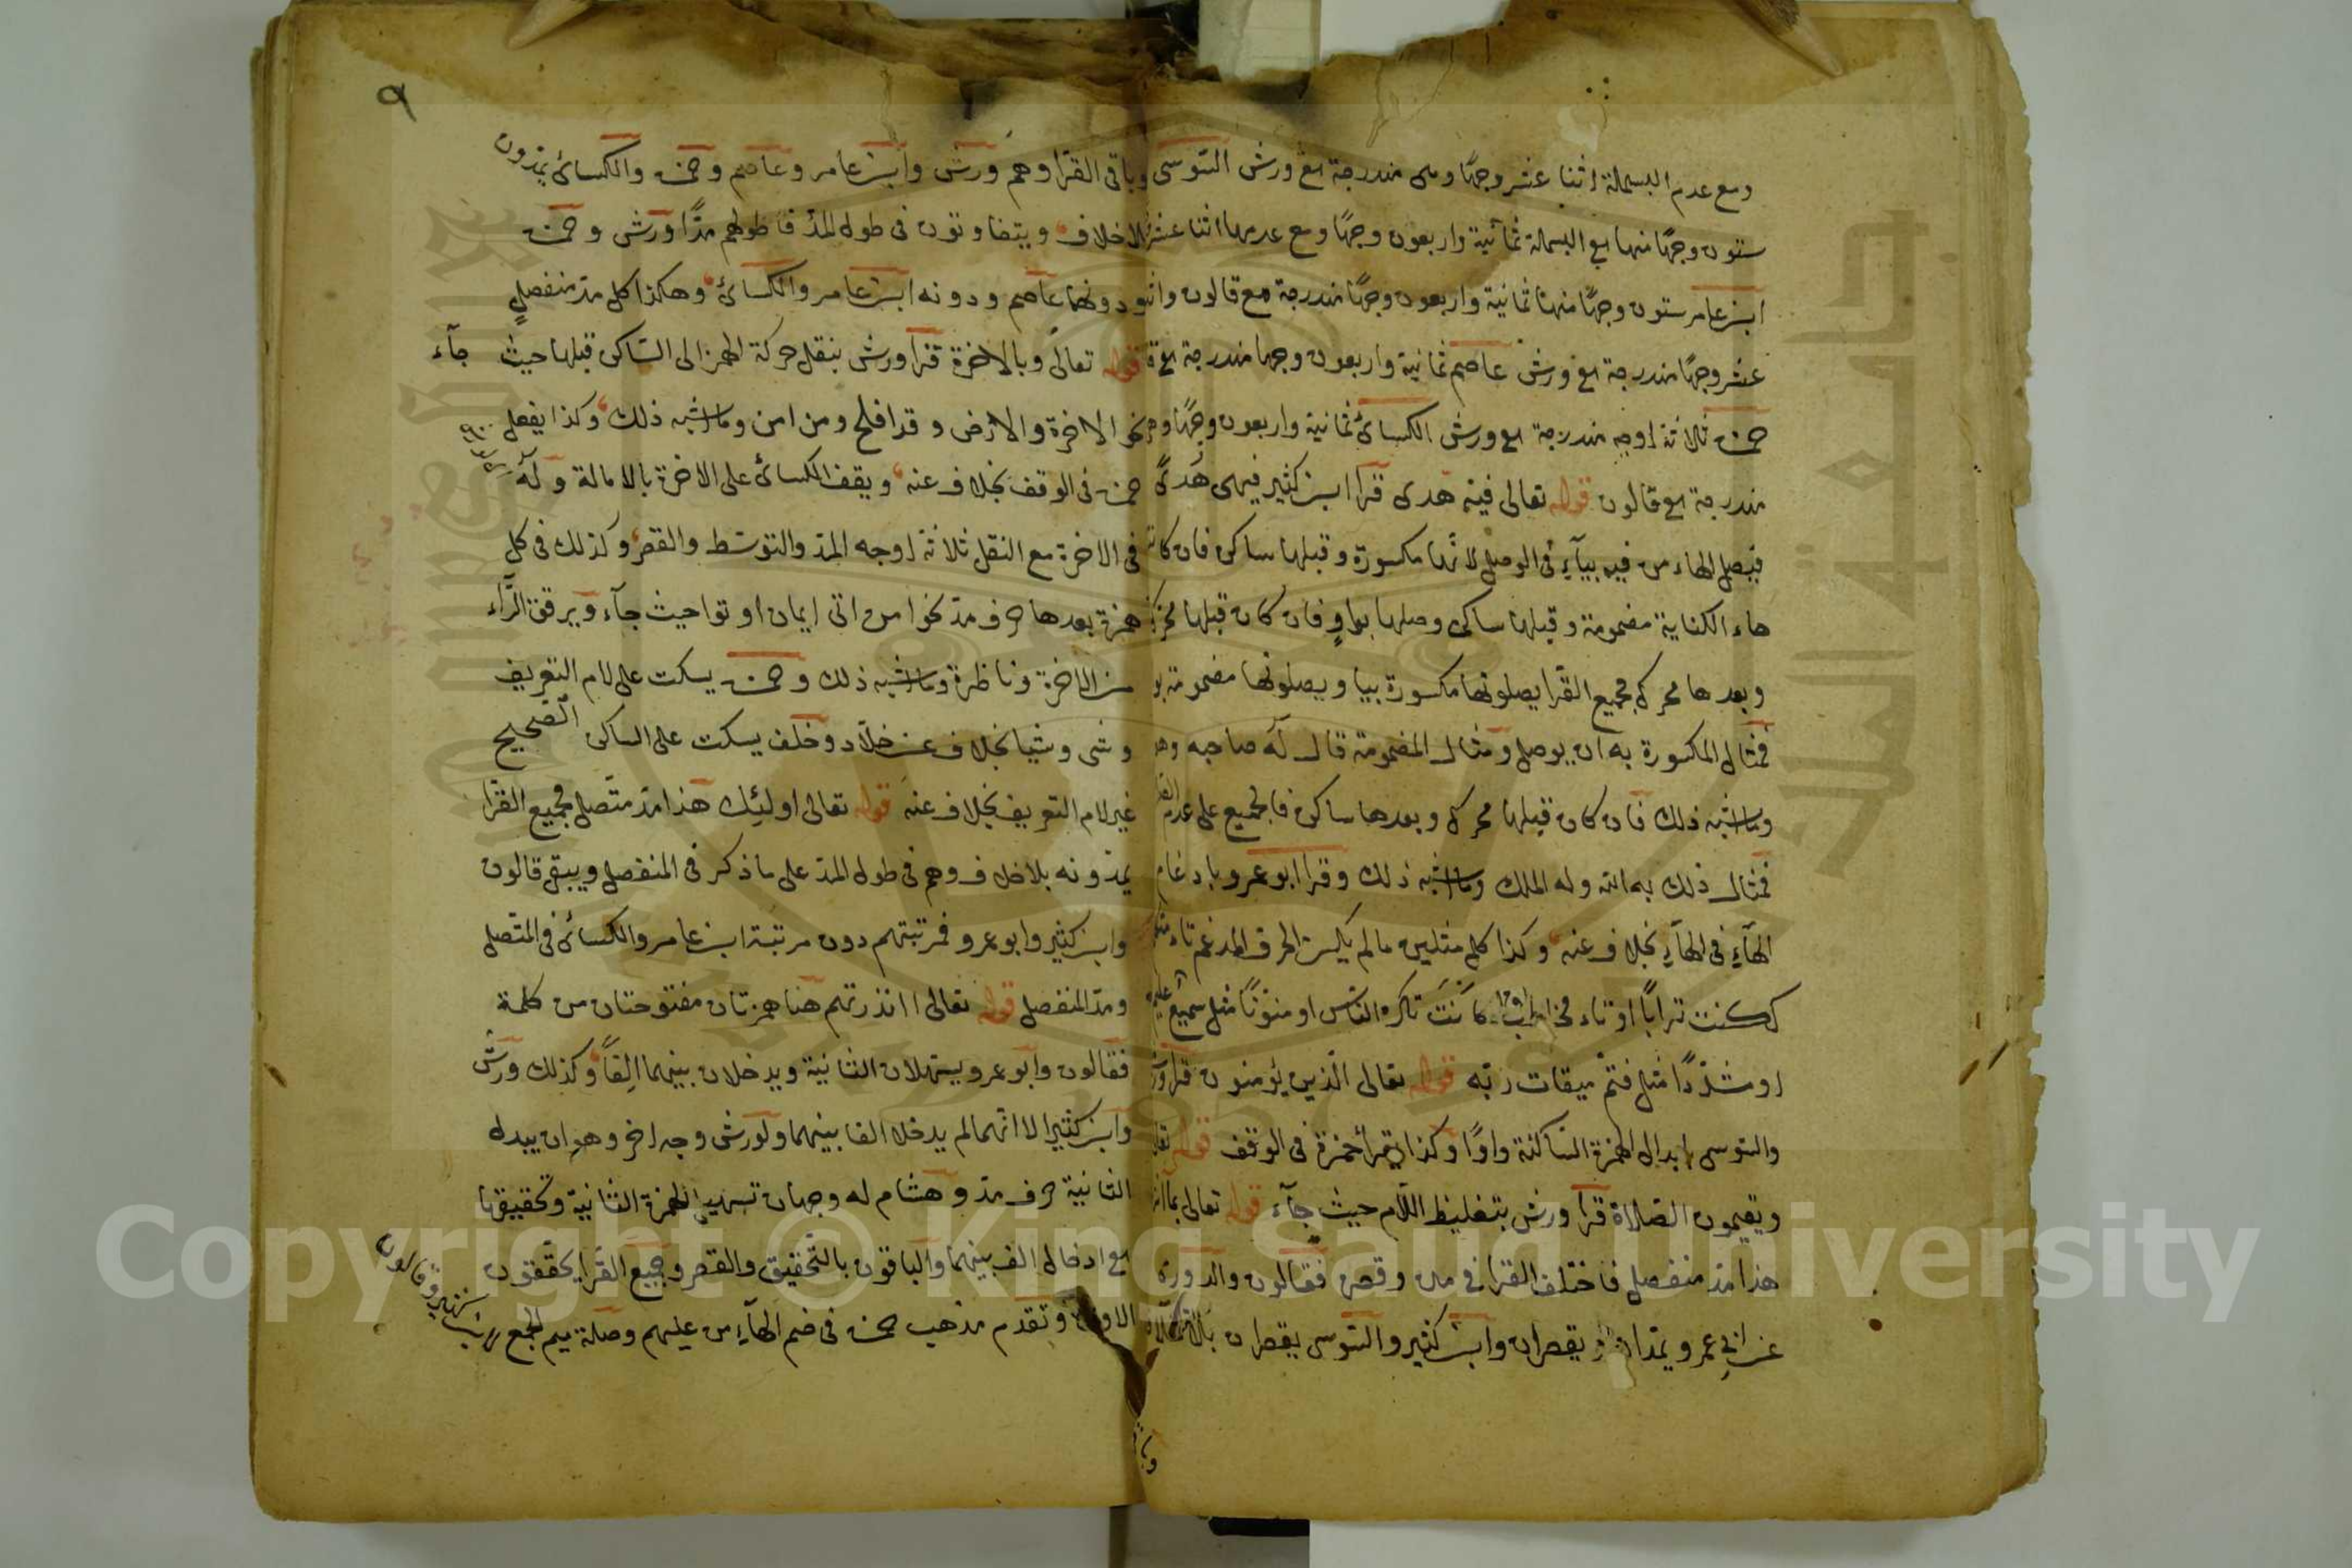 ومع عدم البسملة اثنا عشر وجهًا وهى مندرجة مع ورش السّوسى
ستون وجهًا منها مع البسملة ثمانية واربعون وجهًا ومع عدمها اثنا عشر
ابن عامر ستون وجهًا منها ثمانية واربعون وجهًا مندرجة مع قالون واثنا
عشر وجهًا مندرجة مع ورش عاصم ثمانية واربعون وجها مندرجة مع
حمزة ثلاثة اوجه مندرجة مع ورش الكسائى ثمانية واربعون وجهًا
مندرجة مع قالون قوله تعالى فيه هدى قرا ابن كثير فيهى هدًى
فيصل الهاء من فيه بيآءٍ فى الوصل لانّها مكسورة وقبلها ساكن فان كانت
هاء الكناية مضمومة وقبلها ساكن وصلها بواوٍ فان كان قبلها محرك
وبعدها محرك فجميع القرا يصلونها مكسورة بيا ويصلونها مضمومة بو
فمثال المكسورة به ان يوصل ومثال المضمومة قال له صاحبه وهو
وما اشبه ذلك فان كان قبلها محرك وبعدها ساكن فالجميع على عدم
فمثال ذلك به الله وله الملك وما اشبه ذلك وقرا ابو عمرو بادغام
الهآءِ فى الهآءِ بخلاف عنه وكذا كل مثلين مالم يكن الحرف المدغم تاء
ككنت ترابًا او تاء مخاطب كانت تكره النّاس او منوّنًا مثل سميع عليم
او مشدّدًا مثل فتمّ ميقات ربّه قوله تعالى الّذين يؤمنون قرا ورش
والسّوسى بابدال الهمزة السّاكنة واوًا وكذا يقرأ حمزة فى الوقف قوله
ويقيمون الصّلاة قرا ورش بتغليظ اللّام حيث جآء قوله تعالى بما انز
هذا مدّ منفصل فاختلف القرا فى مده وقصره فقالون والدورى
عن ابى عمرو يمدان ويقصران وابن كثير والسّوسى يقصران
وبا
٩
وباقى القرّا وهم ورش وابن عامر وعاصم وحمزة والكسائى يمدّون
بلاخلاف ويتفاوتون فى طول المدّ فاطولهم مدًّا ورش وحمزة
ودونهما عاصم ودونه ابن عامر والكسائى وهكذا كل مدّ منفصلٍ
قوله تعالى وبالاخرة قرا ورش بنقل حركة الهمز الى السّاكن قبلها حيث جآء
نحو الاخرة والارض وقد افلح ومن امن وما اشبه ذلك وكذا يفعل
حمزة فى الوقف بخلاف عنه ويقف الكسائى على الاخرة بالامالة وله
فى الاخرة مع النقل ثلاثة اوجه المدّ والتوسّط والقصر وكذلك فى كل
همزة بعدها حرف مدّ نحو امن اتى ايمان اوتوا حيث جآء ويرقق الرّاء
من الاخرة وناظرة وما اشبه ذلك وحمزة يسكت على لام التعريف
وشى وشيا بخلاف عن خلّاد وخلف يسكت على الساكن الصّحيح
غير لام التعريف بخلاف عنه قوله تعالى اولئك هذا مدّ متّصل فجميع القرّا
يمدّونه بلاخلاف وهم فى طول المدّ على ما ذكر فى المنفصل ويبقى قالون
وابن كثير وابو عمرو فمرتبتهم دون مرتبة ابن عامر والكسائى فى المتّصل
ومدّ المنفصل قوله تعالى اانذرتهم هنا همزتان مفتوحتان من كلمة
فقالون وابو عمرو يسهّلان الثانية ويدخلان بينهما الفًا وكذلك ورش
وابن كثير الا انّهما لم يدخلا الفا بينهما ولورش وجه اخر وهو ان يبدل
الثانية حرف مدّ وهشام له وجهان تسهيل الهمزة الثانية وتحقيقها
مع ادخال الف بينهما والباقون بالتّحقيق والقصر وجميع القرّا يحقّقون
الاولى وتقدم مذهب حمزة فى ضم الهآءِ من عليهم وصلة ميم الجمع لابن كثير وقالون
Copyright © King Saud University